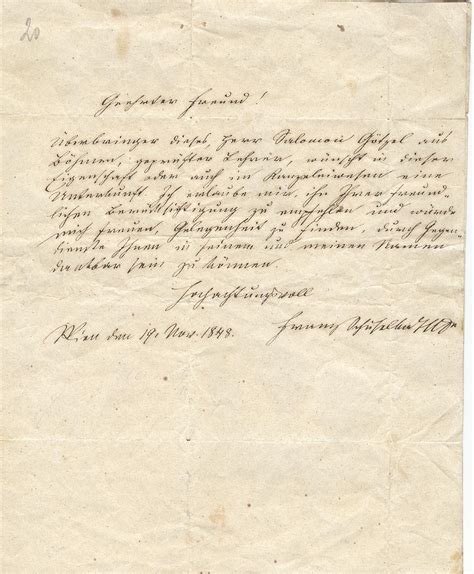 20
Geehrter Freund!
Überbringer dieses, Herr Salomon Götzel aus
Böhmen, geprüfter Lehrer, wünscht in dieser
Eigenschaft oder auch im Kanzleiwesen eine
Unterkunft. Ich erlaube mir, ihn Ihrer freund-
lichen Berücksichtigung zu empfehlen und würde
mich freuen, Gelegenheit zu finden, durch Gegen-
dienste Ihnen in seinem und meinen Namen
dankbar sein zu können.
Hochachtungsvoll
Wien den 19. Nov. 1848. Franz Schuselka